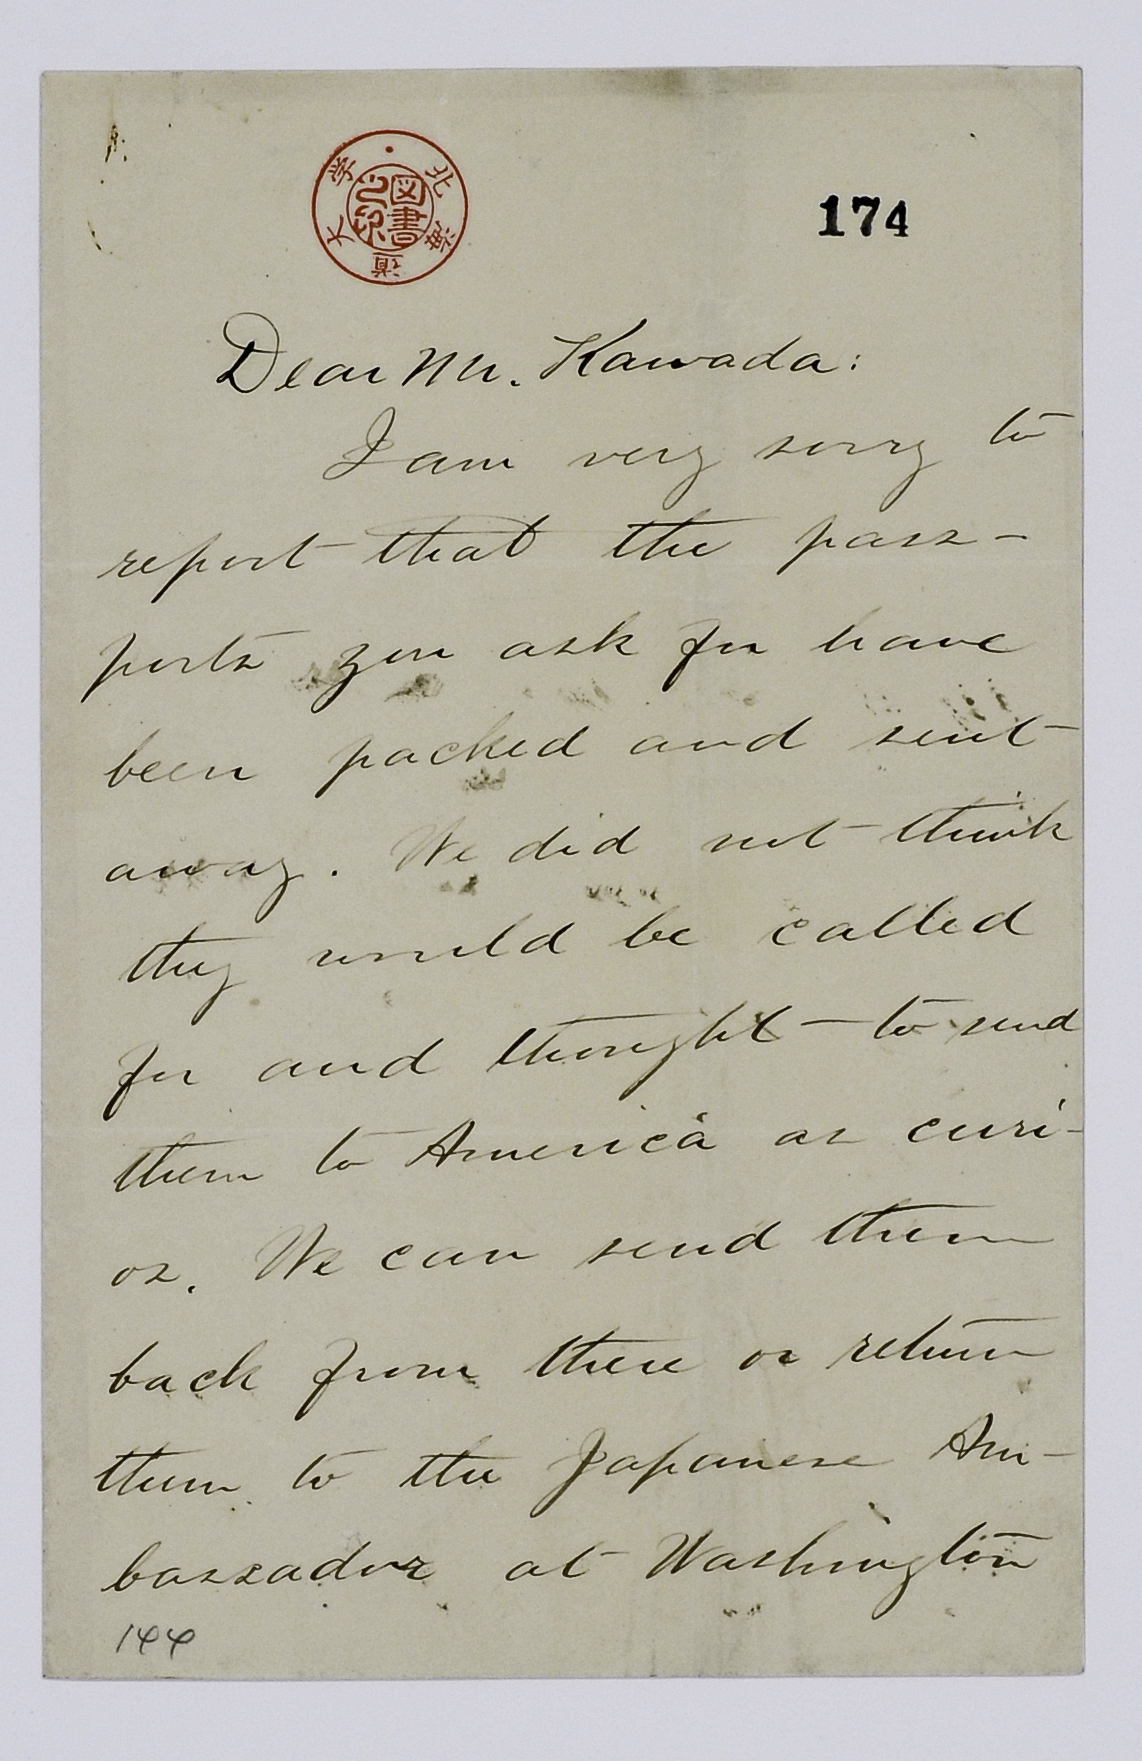 北海道大学
図書之印
174
Dear Mr. Kawada:
I am very sorry to
report that the pass-
ports you ask for have
been packed and sent
away. We did not think
they would be called
for and thought to send
them to America as curi-
os. We can send them
back from there or return
them to the Japanese Am-
bassador at Washington
144